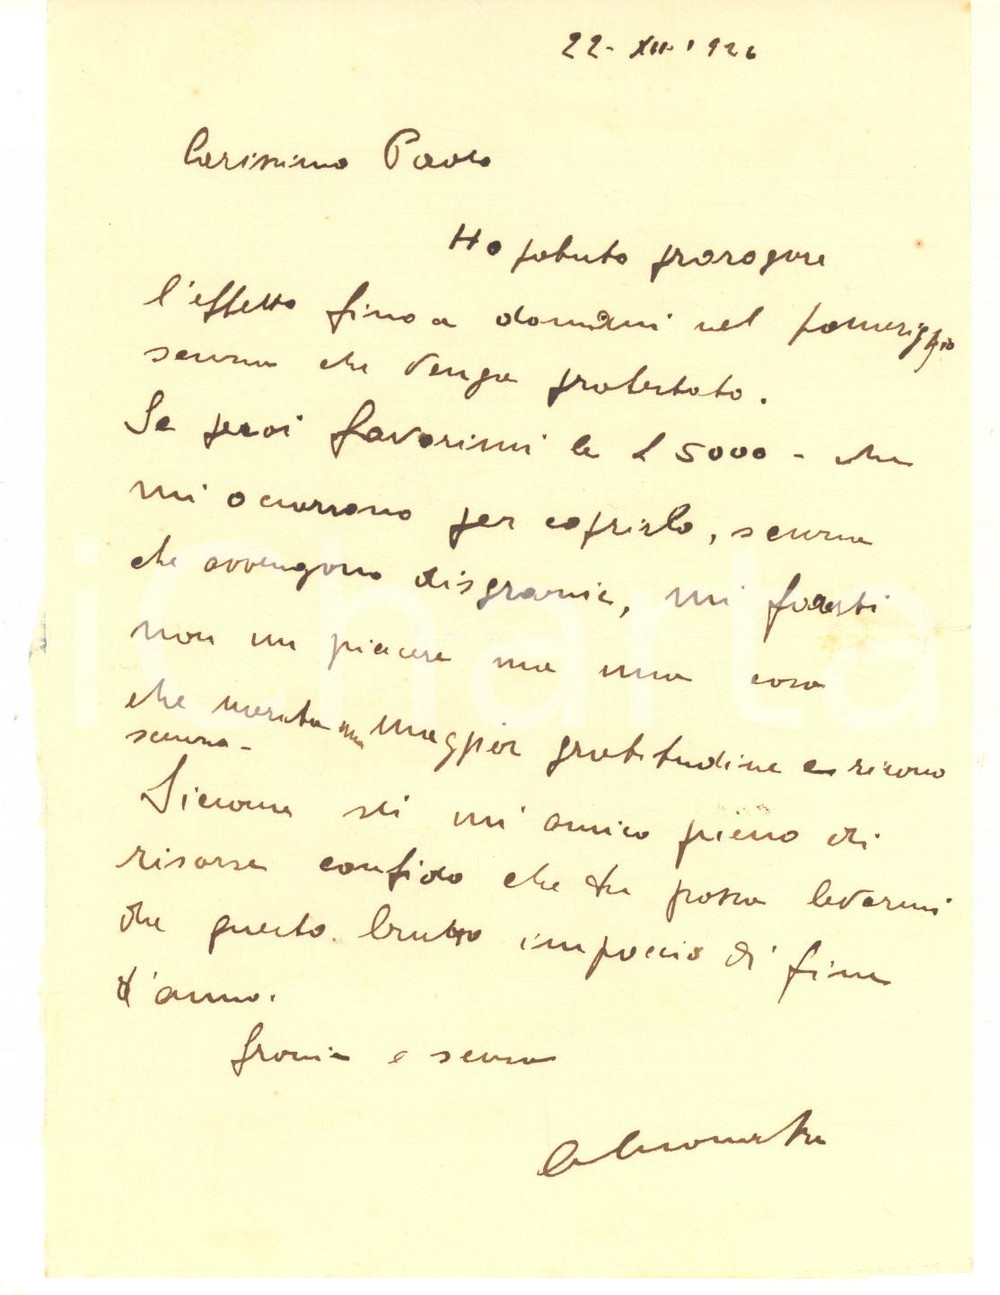 22-XII-1926
Carissimo Paolo
Ho potuto prorogare
l'effetto fino a domani nel pomeriggio
senza che venga protestato.
Se puoi favorirmi le L 5000 - che
mi occorrono per coprirlo, senza
che avvengono disgrazie, mi faresti
non un piacere ma una cosa
che merita la maggior gratitudine e ricono
scenza -
Siccome sei un amico pieno di
risorse confido che tu possa levarmi
da questo brutto impaccio di fine
d'anno.
Grazie e scusa
iCharta